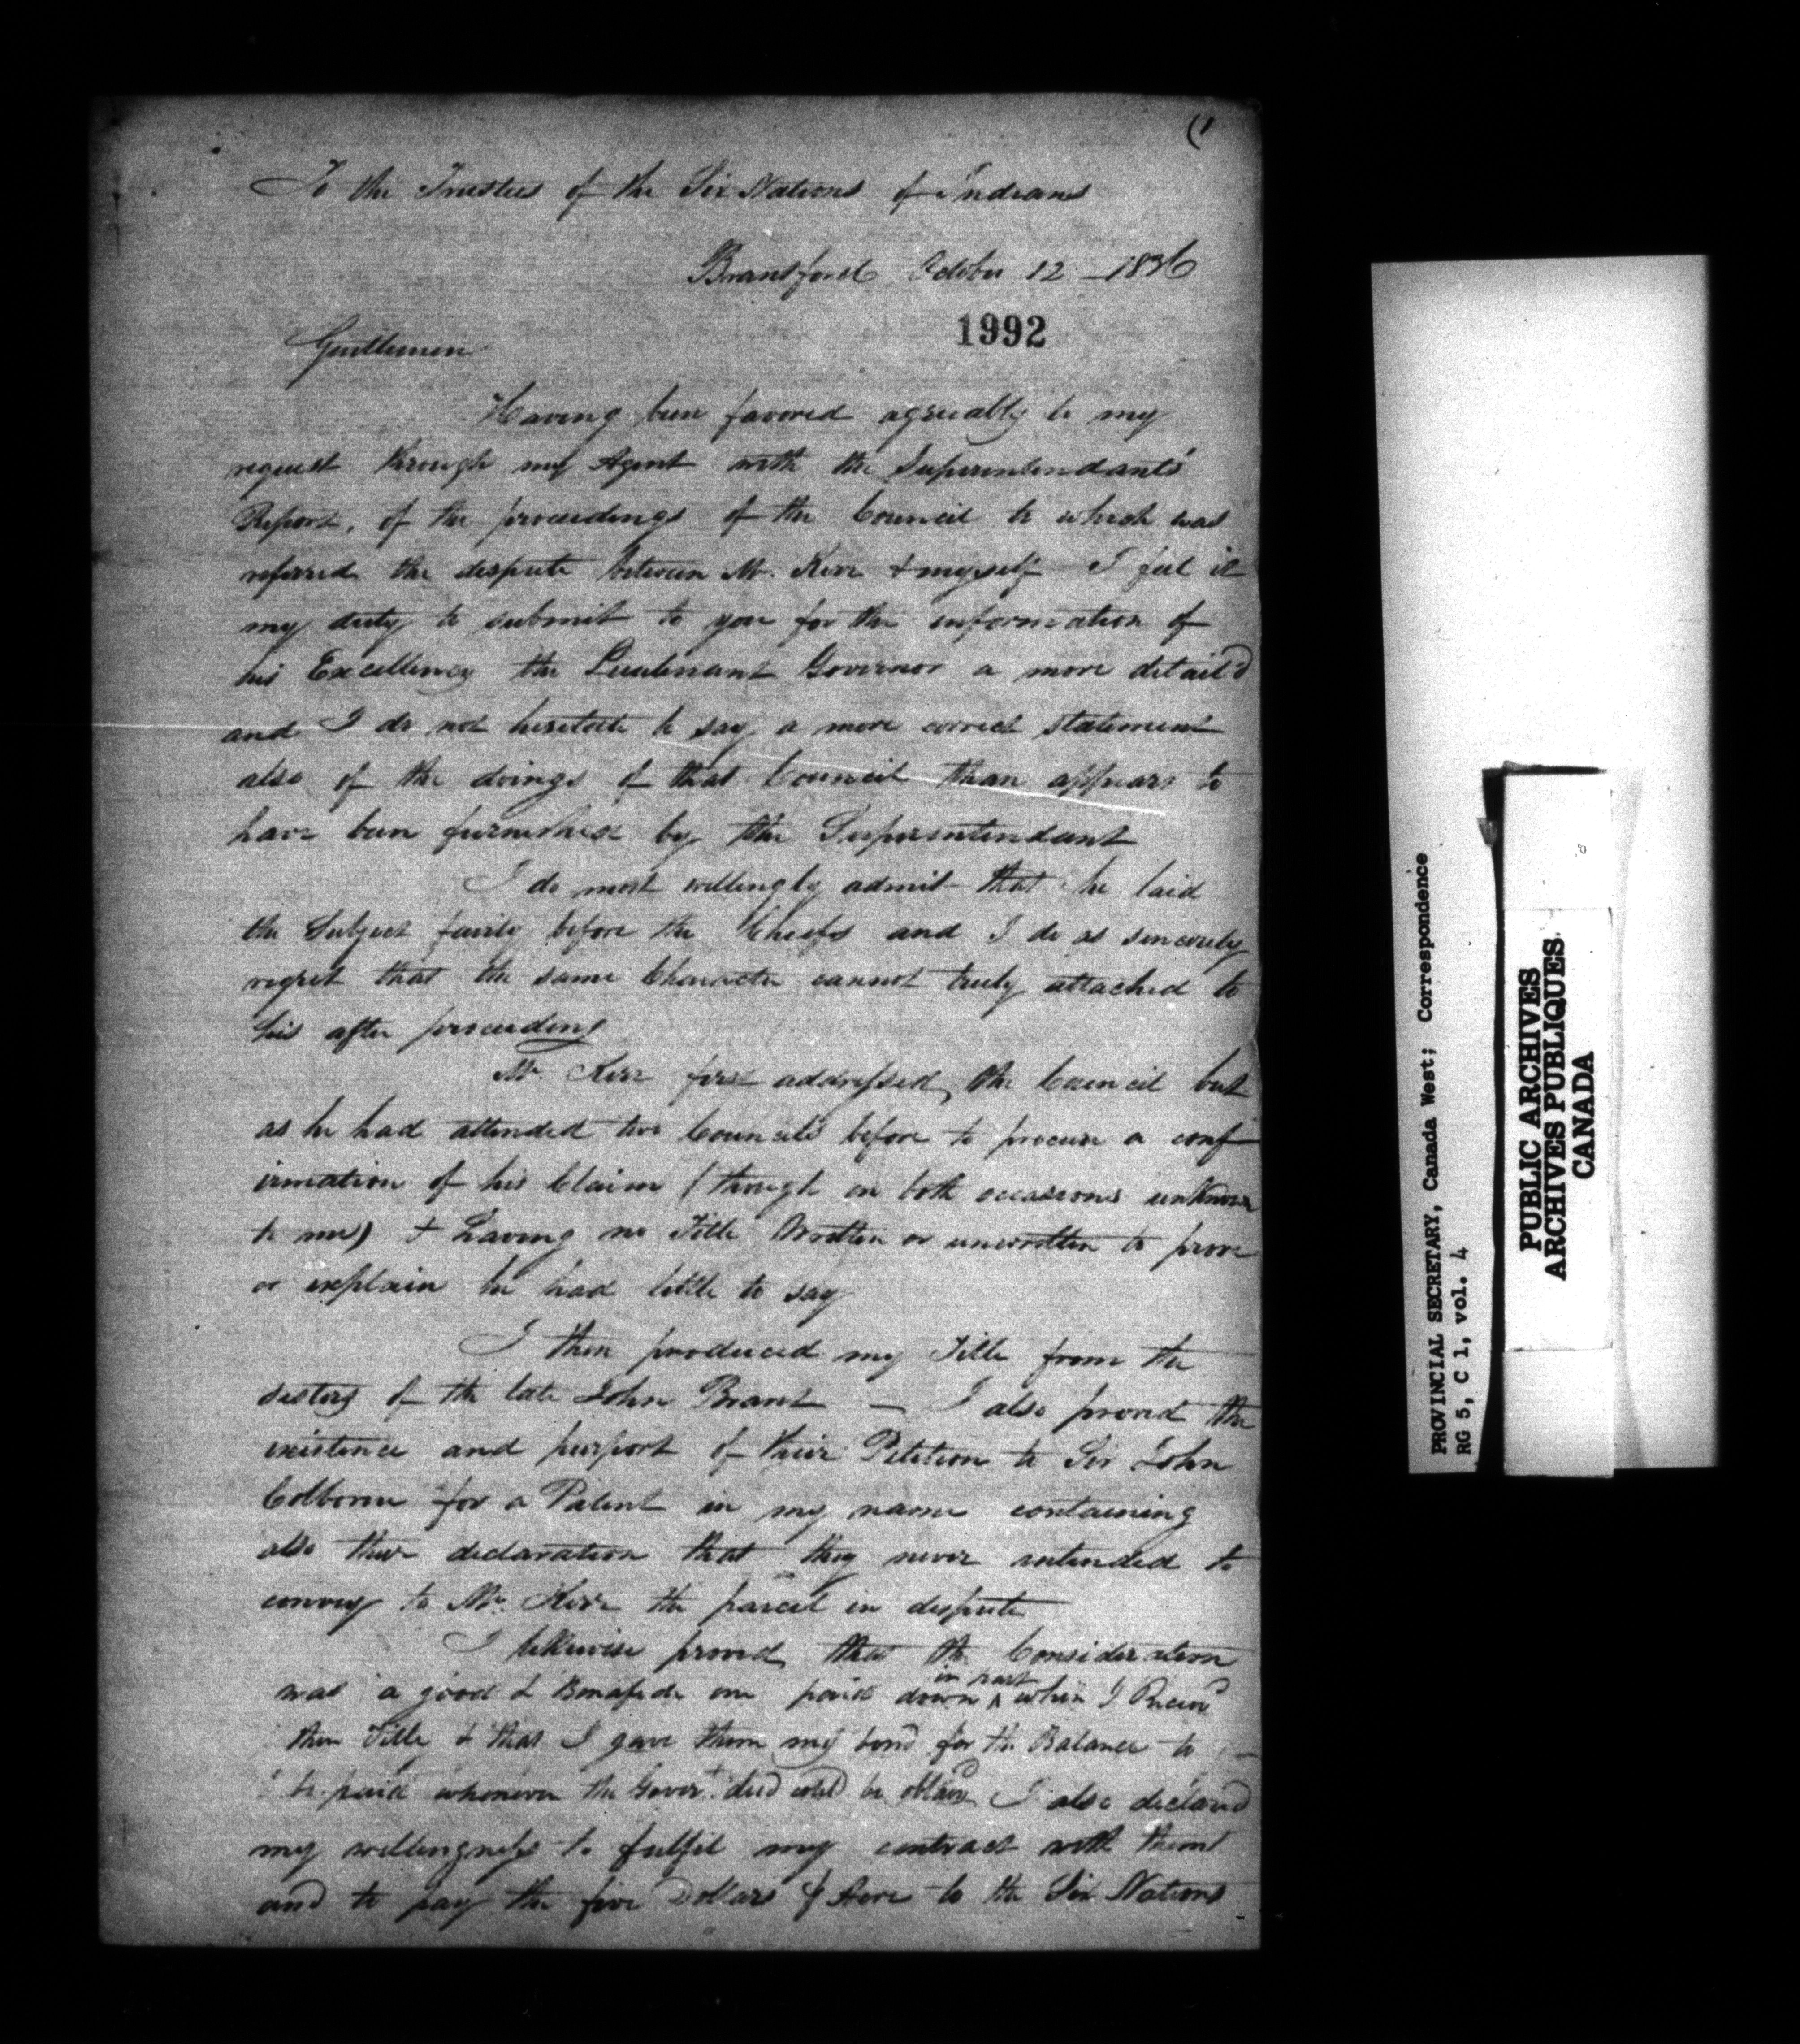 (1
To the Trustees of the Six Nations of Indians
Brantford October 12 - 1836
1992
Gentlemen
Having been favored agreeably to my
request through my Agent with the Superintendants'
Report, of the proceedings of the Council to which was
referred the dispute between Mr. Kerr & myself I feel it
my duty to submit to you for the information of
his Excellency the Lieutenant Governor a more detail'd
and I do not hesitate to say a more correct statement
also of the doings of that Council than appears to
have been furnished by the Superintendant
I do most willingly admit that he laid
the Subject fairly before the Chiefs and I do as sincerely
regret that the same Character cannot truly attached to
his after proceeding
Mr. Kerr first addressed the Council but
as he had attended two Councils before to procure a conf
irmation of his Claim (though on both occasions unknown
to me) & having no Title Written or unwritten to prove
or explain he had little to say
I then produced my Title from the
sisters of the late John Brant – I also proved the
existence and purport of their Petition to Sir John
Colborne for a Patent in my name containing
also their declaration that they never intended to
convey to Mr. Kerr the parcel in dispute
I likewise proved that the Consideration
was a good & Bonafide one paid down in part when I Receiv'd
their Title & that I gave them my bond for the Balance to
be paid whenever the Govert deed could be obtain'd I also declared
my willingness to fulfil my contract with them
and to pay the five Dollars ⅌ Acre to the Six Nations
PROVINCIAL SECRETARY, Canada West; Correspondence
RG 5, C 1, vol. 4
PUBLIC ARCHIVES
ARCHIVES PUBLIQUES
CANADA